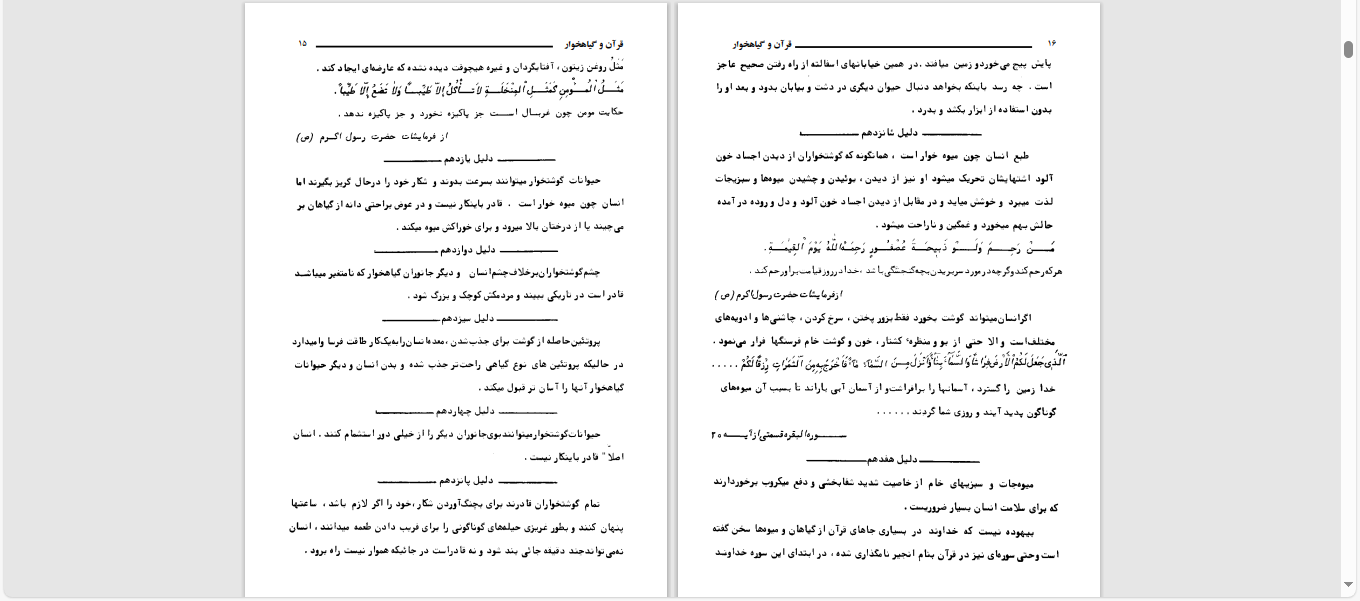 قرآن و گیاهخوار ۱۵
مثل روغن زیتون ، آفتابگردان و غیره هیچوقت دیده نشده که عارضه‌ای ایجاد کند .
مَثَلُ الْمُؤْمِنِ كَمَثَلِ الْمِنْخَلَةِ لاٰ تَأْكُلُ اِلاّٰ طَيِّباً وَلاٰ تَضَعُ اِلاّٰ طَيِّباً .
حکایت مومن چون غربال است جز پاکیزه نخورد و جز پاکیزه ندهد .
از فرمایشات حضرت رسول اکرم (ص)
دلیل یازدهم
حیوانات گوشتخوار میتوانند بسرعت بدوند و شکار خود را درحال گریز بگیرند اما
انسان چون میوه خوار است . قادر باینکار نیست و در عوض براحتی دانه از گیاهان بر
می‌چیند یا از درختان بالا میرود و برای خوراکش میوه میکند .
دلیل دوازدهم
چشم گوشتخواران برخلاف چشم انسان و دیگر جانوران گیاهخوار که نامتغیر میباشد
قادر است در تاریکی ببیند و مردمکش کوچک و بزرگ شود .
دلیل سیزدهم
پروتئین حاصله از گوشت برای جذب شدن ، معده انسان را به یک کار طاقت فرسا وامیدارد
در حالیکه پروتئین های نوع گیاهی راحت‌تر جذب شده و بدن انسان و دیگر حیوانات
گیاهخوار آنها را آسان تر قبول میکند .
دلیل چهاردهم
حیوانات گوشتخوار میتوانند بوی جانوران دیگر را از خیلی دور استشمام کنند . انسان
اصلا" قادر باینکار نیست .
دلیل پانزدهم
تمام گوشتخواران قادرند برای بچنگ آوردن شکار ، خود را اگر لازم باشد ، ساعتها
پنهان کنند و بطور غریزی حیله‌های گوناگونی را برای فریب دادن طعمه میدانند ، انسان
نه می‌تواند چند دقیقه جائی بند شود و نه قادر است در جائیکه هموار نیست راه برود .
۱۶ قرآن و گیاهخوار
پایش پیچ می‌خورد و زمین میافتد . در همین خیابانهای اسفالته از راه رفتن صحیح عاجز
است . چه رسد باینکه بخواهد دنبال حیوان دیگری در دشت و بیابان بدود و بعد او را
بدون استفاده از ابزار بکشد و بدرد .
دلیل شانزدهم
طبع انسان چون میوه خوار است ، همانگونه که گوشتخواران از دیدن اجساد خون
آلود اشتهایشان تحریک میشود او نیز از دیدن ، بوئیدن و چشیدن میوه‌ها و سبزیجات
لذت میبرد و خوشش میاید و در مقابل از دیدن اجساد خون آلود و دل و روده در آمده
حالش بهم میخورد و غمگین و ناراحت میشود .
مَنْ رَحِمَ وَلَوْ ذَبيحَةَ عُصْفُورٍ رَحِمَهُ اللّٰهُ يَوْمَ الْقِيٰمَةِ .
هر که رحم کند و گرچه در مورد سر بریدن بچه گنجشگی باشد ، خدا در روز قیامت بر او رحم کند .
از فرمایشات حضرت رسول اکرم (ص)
اگر انسان میتواند گوشت بخورد فقط بزور پختن ، سرخ کردن ، چاشنی‌ها و ادویه‌های
مختلف است و الا حتی از بو و منظره‌ٔ کشتار ، خون و گوشت خام فرسنگها فرار می‌نمود .
اَلَّذِى جَعَلَ لَكُمُ الْاَرْضَ فِرٰاشاً وَالسَّمٰاءَ بِنٰاءً وَاَنْزَلَ مِنَ السَّمٰاءِ مٰاءً فَاَخْرَجَ بِهِ مِنَ الثَّمَرٰاتِ رِزْقاً لَكُمْ . . . . .
خدا زمین را گسترد ، آسمانها را برافراشت و از آسمان آبی باراند تا بسبب آن میوه‌های
گوناگون پدید آیند و روزی شما گردند . . . . . .
سوره البقره قسمتی از آیه ۲۰
دلیل هفدهم
میوه‌جات و سبزیهای خام از خاصیت شدید شفابخشی و دفع میکروب برخوردارند
که برای سلامت انسان بسیار ضروریست .
بیهوده نیست که خداوند در بسیاری جاهای قرآن از گیاهان و میوه‌ها سخن گفته
است و حتی سوره‌ای نیز در قرآن بنام انجیر نامگذاری شده ، در ابتدای این سوره خداوند